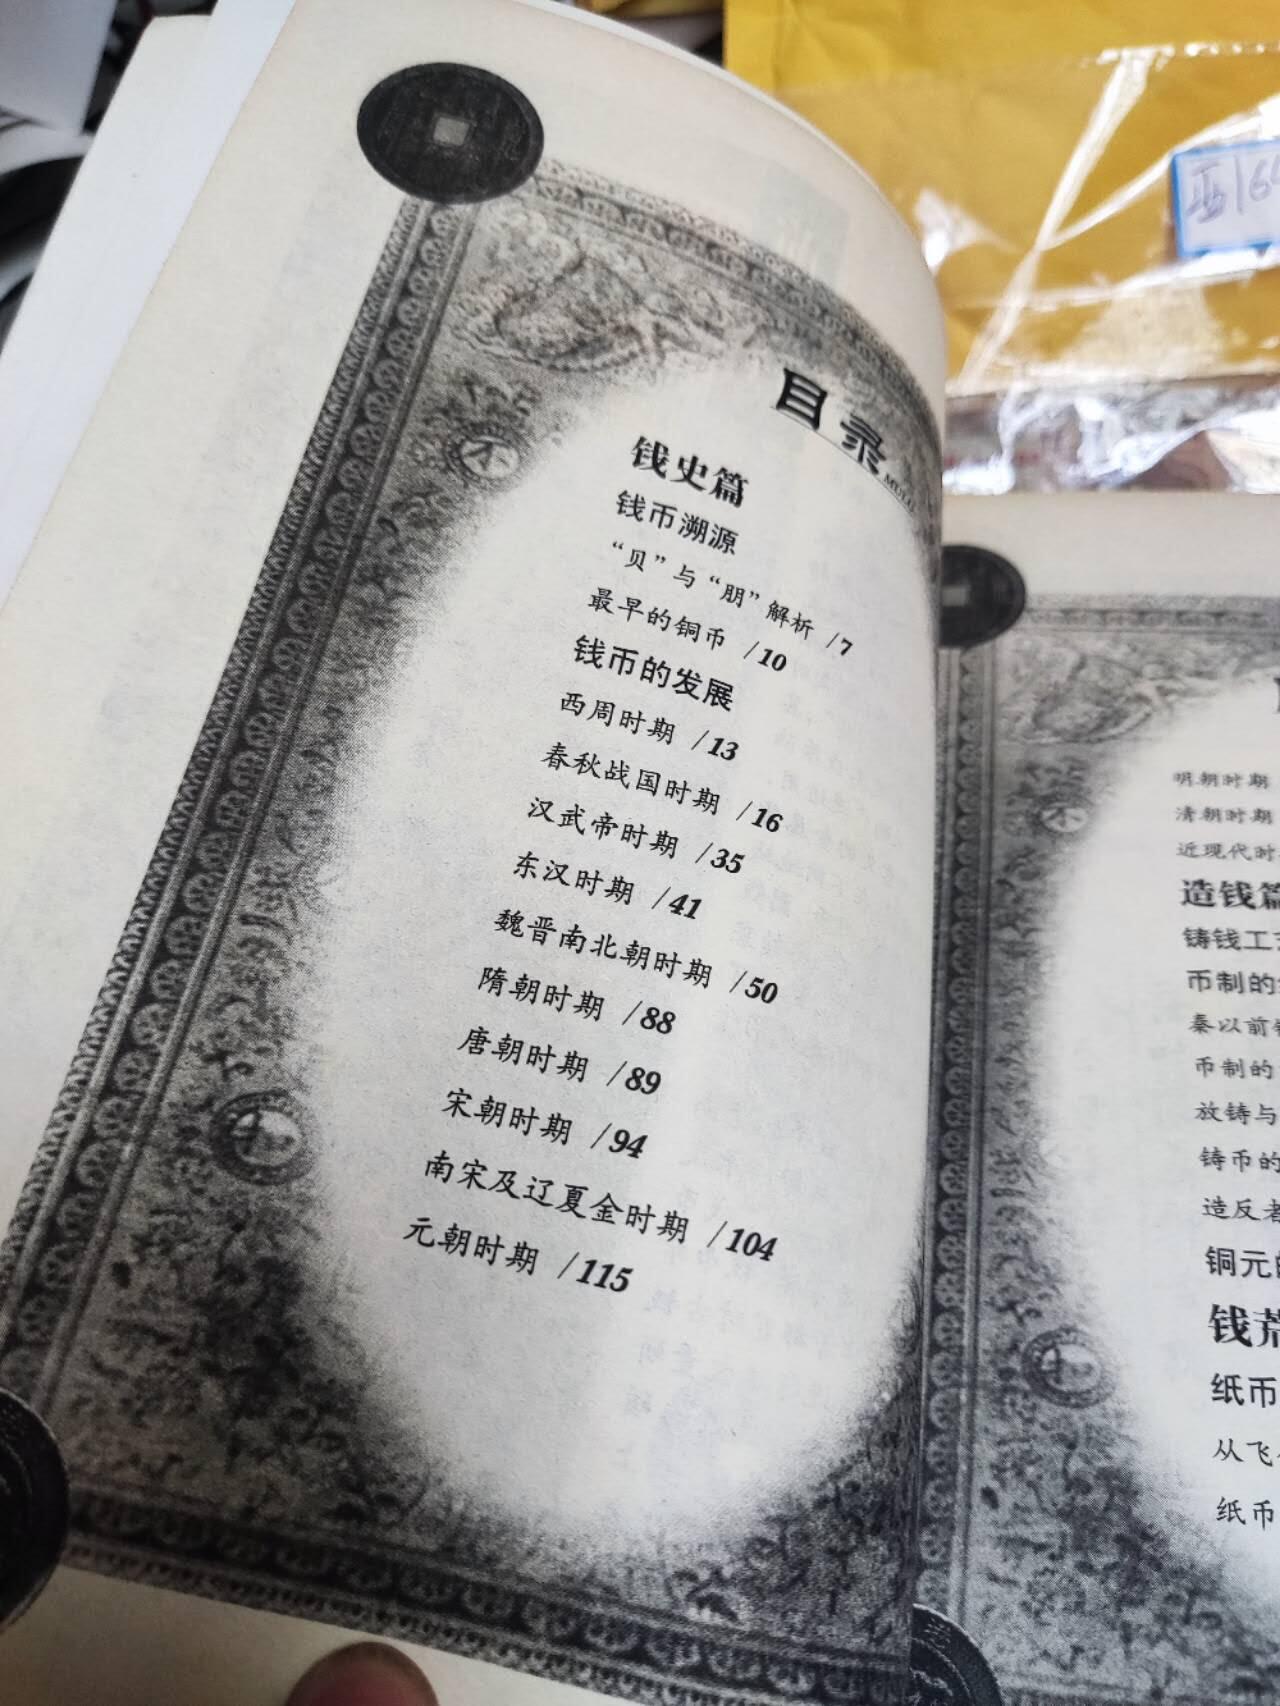 目录
钱史篇
钱币溯源
“贝”与“朋”解析 /7
最早的铜币 /10
钱币的发展
西周时期 /13
春秋战国时期 /16
汉武帝时期 /35
东汉时期 /41
魏晋南北朝时期 /50
隋朝时期 /88
唐朝时期 /89
宋朝时期 /94
南宋及辽夏金时期 /104
元朝时期 /115
明朝时期
清朝时期
近现代时
造钱篇
铸钱工
币制的
秦以前
币制的
放铸与
铸币的
造反者
铜元
钱荒
纸币
从飞
纸币